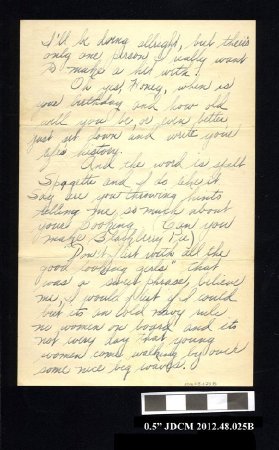 I'll be doing allright, but theirs
only one person I really want
to make a hit with!
Oh yes Honey, when is
your birthday and how old
will you be, or even better
just sit down and write your
life history.
And the word is spelt
Spagette and I do like it
Say see you throwing hints
telling me so much about
your cooking. Can you
make Strawberry Pie)
"Don't flirt with all the
good looking girls" that
was a sweet phrase, believe
me, I would flirt if I could
but its an old Navy rule
no women on board and its
not every day that young
women come walking by over
some nice big waves.
2012.48.025B
0.5" JDCM 2012.48.025B